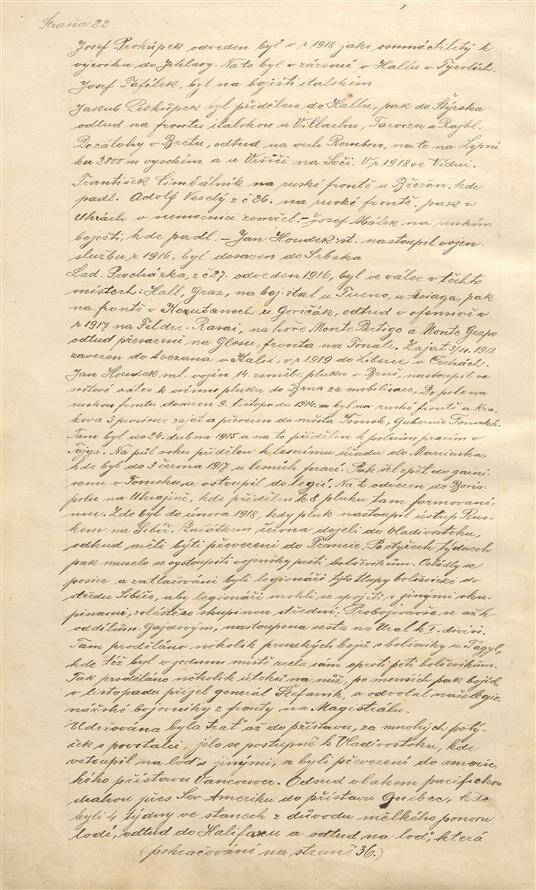 Strana 22
Josef Prokůpek odveden byl v r 1918 jako osmnáctiletý k
výcviku do Jihlavy. Na to byl v zázemí v Hallu v Tyrolích.
Josef Tafílek, byl na bojišti italském
Jakub Prokůpek byl přidělen do Hallu, pak do Štýrska
odtud na frontu italskou u Villachu, Tarvizu a Rajbl.
Pozáloby v Brétu, odtud na vrch Rombon, na to na Lipnik
2800 m vysokém a u Vršiči na Soči. V r 1918 ve Vídni.
František Cimbálník na ruské frontě u Březan, kde
padl. Adolf Veselý z č 26. na ruské frontě, pak v
Uhrách v nemocnici zemřel. – Josef Málek na ruském
bojišti, kde padl. – Jan Houdek st. nastoupil vojen.
službu r 1916, byl dosazen do Srbska
Lad. Procházka, z č 27. odveden 1916, byl ve válce v těchto
místech: Hall, Graz, na boj. ital u Fucno, u Asiaga, pak
na frontě v Korutanech u Goričák, odtud v ofensivě a
r 1917 na Feldre - Rasai, na hoře Monte Pertigo a Monte Grapa
odtud přesazeni na Glosu, fronta na Tonale. Zajat 3/11. 1918
zavezen do Avezana v Italii, v r 1919 do Liberce v Čechách.
Jan Houdek ml. vojín 14. zeměb. pluku v Brně, nastoupil ve
světové válce k svému pluku do Brna za mobilisace, Do pole na
ruskou frontu dosazen 9. listopadu 1914. a byl na ruské frontě u Kra-
kova 3 prosince zajat a převezen do města Tomsk, Gubernie Tomské.
Tam byl do 24. dubna 1915 a na to přidělen k polním pracím v
Tajze. Na půl roku přidělen k lesnímu úřadu do Mariinska,
kde byl do 3 června 1917 u lesních prací. Pak šel zpět do garni-
sonu v Tomsku, a vstoupil do legií. Na to odvezen do Boris-
pole na Ukrajině, kde přidělen k 8. pluku tam formované-
mu. Zde byl do února 1918, kdy pluk nastoupil ústup Rus-
kem na Sibiř. Začátkem června dojeli do Vladivostoku,
odkud měli býti převezeni do Francie. Po čtyřech týdnech
pak muselo se vystoupiti vojensky proti bolševikům. Octly se
posice a zatlačováni byli legionáři tyto tlupy bolševické do
středu Sibiře, aby legionáři mohli se spojiti s jinými sku-
pinami, zvláště se skupinou střední. Probojovavše se až k
oddílům Gajdovým, nastoupena cesta na Ural k I. divisi.
Tam proděláno několik prudkých bojů s bolševiky u Tagyl,
kde též byl v jednom místě zcela sám oproti pěti bolševikům.
Tak proděláno několik útoků na nůž, po menších pak bojích
v listopadu přijel generál Štefanik, a odvolal naše legio-
nářské bojovníky z fronty na Magistrálu.
Udržována byla trať až do přístavu, za mnohých potý-
ček s povstalci, jelo se postupně k Vladivostoku, kde
vstoupil na loď s jinými, a byli převezeni do americ-
kého přístavu Vancouver. Odsud vlakem pacifickou
drahou přes Sev. Ameriku do přístavu Québec, kde
byli 4 týdny ve stanech z důvodu mělkého ponoru
lodi, odtud do Halifaxu a odtud na lodi, která
(pokračování na straně 36.)